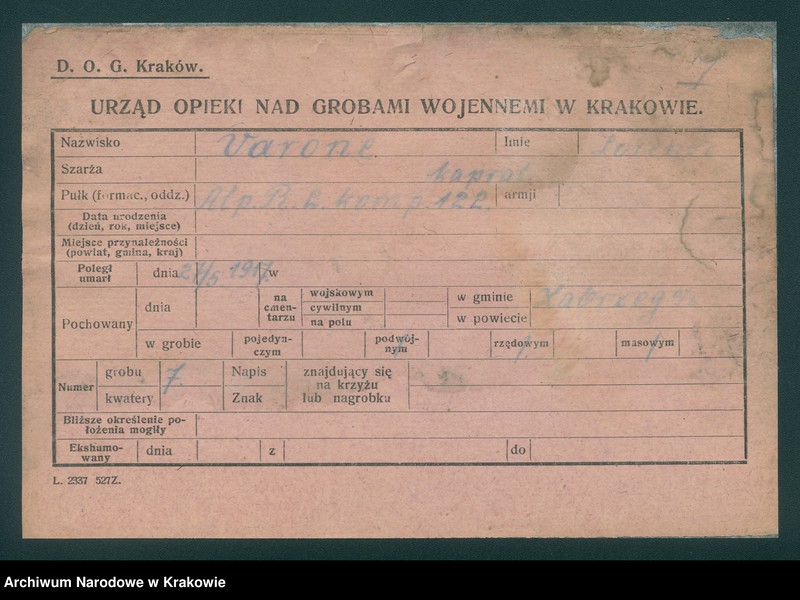 D. O. G. Kraków.
URZĄD OPIEKI NAD GROBAMI WOJENNEMI W KRAKOWIE.
Nazwisko Varone Imie
Szarża kapral
Pułk (formac., oddz.) Alp. R. 2. komp. 122. armji
Data urodzenia
(dzień, rok, miejsce)
Miejsce przynależności
(powiat, gmina, kraj)
Poległ
umarł dnia 21/5 1917. w
Pochowany dnia na cmen-
tarzu wojskowym
cywilnym
na polu w gminie
w powiecie
w grobie pojedyn-
czym podwój-
nym rzędowym masowym
Numer grobu 7
kwatery Napis
Znak znajdujący się
na krzyżu
lub nagrobku
Bliższe określenie po-
łożenia mogiły
Ekshumo-
wany dnia z do
L. 2337 527Z.
Archiwum Narodowe w Krakowie